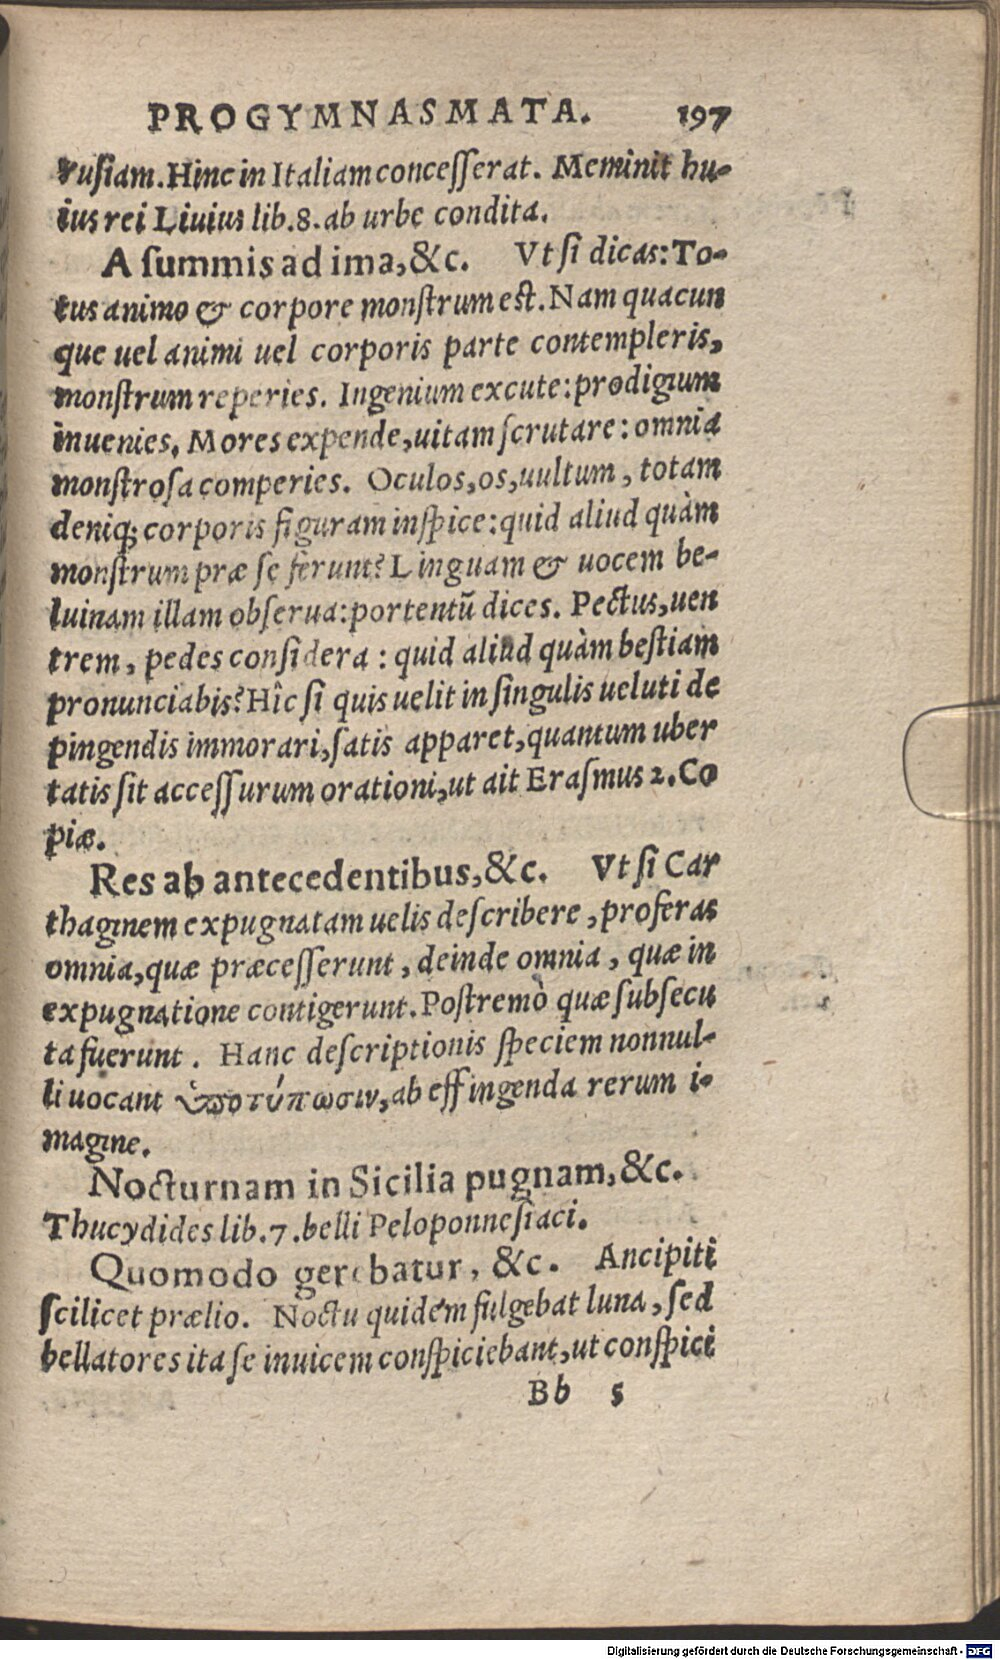 PROGYMNASMATA. 197
rusiam. Hinc in Italiam concesserat. Meminit hu-
ius rei Liuius lib.8. ab urbe condita.
A summis ad ima, &c. Vt si dicas: To-
tus animo & corpore monstrum est. Nam quacun
que uel animi uel corporis parte contempleris,
monstrum reperies. Ingenium excute: prodigium
inuenies. Mores expende, uitam scrutare: omnia
monstrosa comperies. Oculos, os, uultum, totam
deniq; corporis figuram inspice: quid aliud quàm
monstrum præ se ferunt? Linguam & uocem be-
luinam illam obserua: portentū dices. Pectus, uen
trem, pedes considera: quid aliud quàm bestiam
pronunciabis? Hîc si quis uelit in singulis ueluti de
pingendis immorari, satis apparet, quantum uber
tatis sit accessurum orationi, ut ait Erasmus 2. Co
piæ.
Res ab antecedentibus, &c. Vt si Car
thaginem expugnatam uelis describere, proferas
omnia, quæ præcesserunt, deinde omnia, quæ in
expugnatione contigerunt. Postremò quæ subsecu
ta fuerunt. Hanc descriptionis speciem nonnul-
li uocant ὑποτύπωσιν, ab effingenda rerum i-
magine.
Nocturnam in Sicilia pugnam, &c.
Thucydides lib.7. belli Peloponnesiaci.
Quomodo gerebatur, &c. Ancipiti
scilicet prælio. Noctu quidem fulgebat luna, sed
bellatores ita se inuicem conspiciebant, ut conspici
Bb 5
Digitalisierung gefördert durch die Deutsche Forschungsgemeinschaft - DFG